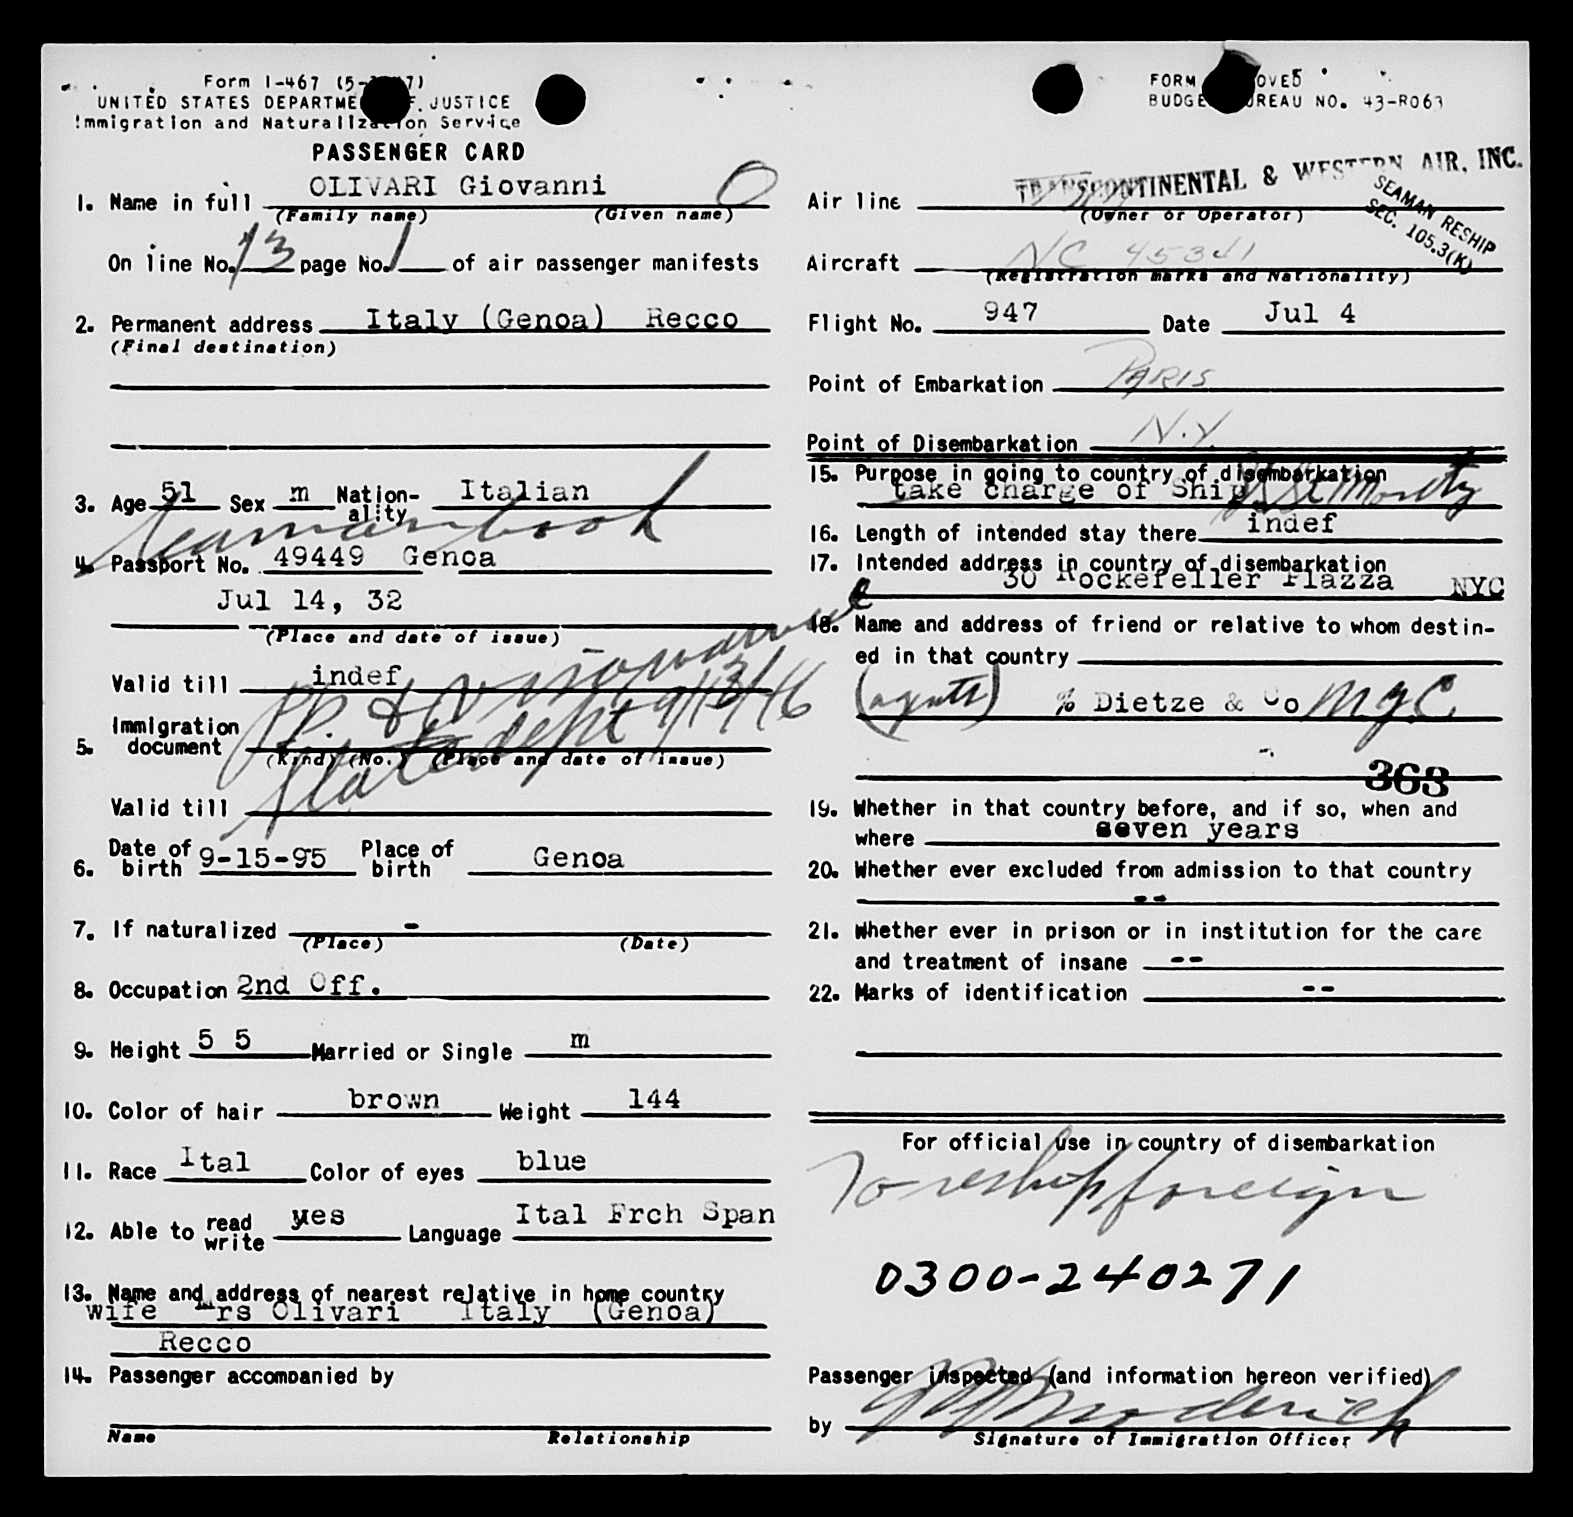 Form I-467 (5- 7)
UNITED STATES DEPARTME F JUSTICE
Immigration and Naturalization Service
PASSENGER CARD
1. Name in full OLIVARI Giovanni O
(Family name) (Given name)
On line No. 13 page No. 1 of air passenger manifests
2. Permanent address Italy (Genoa) Recco
(Final destination)
3. Age 51 Sex m Nation-ality Italian
Seaman book
4. Passport No. 49449 Genoa
Jul 14, 32
(Place and date of issue)
Valid till indef
PP & V
State dept 9/13/46
5. Immigration document
(Kind) (No.) (Place and date of issue)
Valid till
6. Date of birth 9-15-95 Place of birth Genoa
7. If naturalized -
(Place) (Date)
8. Occupation 2nd Off.
9. Height 5 5 Married or Single m
10. Color of hair brown Weight 144
11. Race Ital Color of eyes blue
12. Able to read write yes Language Ital Frch Span
13. Name and address of nearest relative in home country
wife Mrs Olivari Italy (Genoa)
Recco
14. Passenger accompanied by
Name Relationship
FORM OVED
BUDGE UREAU NO. 43-R063
Air line TRANSCONTINENTAL & WESTERN AIR, INC.
(Owner or Operator)
SEAMAN RESHIP
SEC. 105.3(K)
Aircraft NC 45341
(Registration marks and Nationality)
Flight No. 947 Date Jul 4
Point of Embarkation PARIS
Point of Disembarkation N.Y
15. Purpose in going to country of disembarkation
take charge of Ship
16. Length of intended stay there indef
17. Intended address in country of disembarkation
30 Rockefeller Plazza NYC
18. Name and address of friend or relative to whom destin-
ed in that country
(agents) % Dietze & Co N.Y.C.
363
19. Whether in that country before, and if so, when and
where seven years
20. Whether ever excluded from admission to that country
--
21. Whether ever in prison or in institution for the care
and treatment of insane --
22. Marks of identification --
For official use in country of disembarkation
To reship foreign
0300-240271
Passenger inspected (and information hereon verified)
by
Signature of Immigration Officer